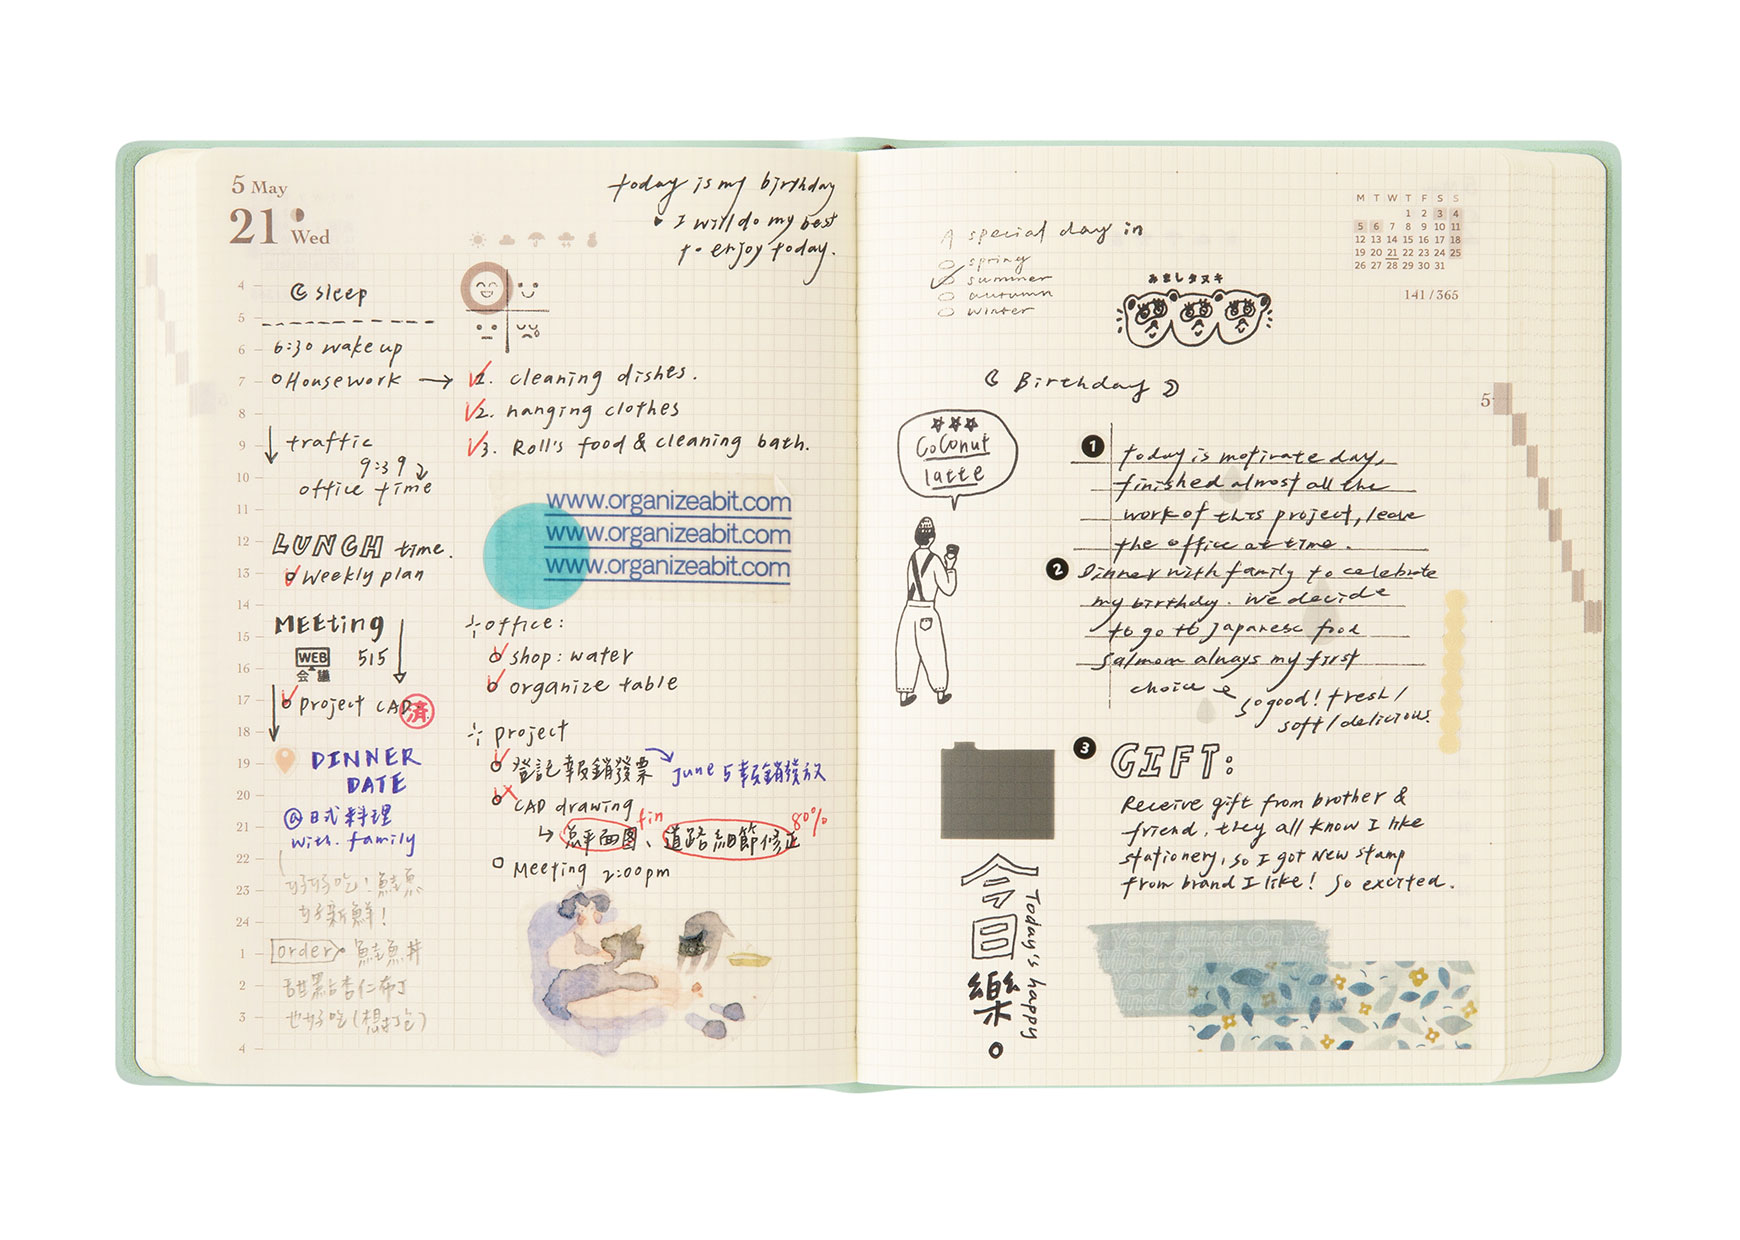 5 May
21 Wed
today is my birthday
♥ I will do my best
to enjoy today.
4
sleep
5
6
6:30 wake up
7
Housework →
1. cleaning dishes.
8
2. hanging clothes
9
traffic
3. Roll's food & cleaning bath.
9:39
10
office time
www.organizeabit.com
www.organizeabit.com
www.organizeabit.com
11
12
LUNCH time.
13
weekly plan
14
MEEting
15
WEB 515
会議
16
17
project CAD
済
18
office:
shop: water
organize table
project
登記報銷發票
june 5 報銷發放
CAD drawing
fin
80%
↳ 总平面图、道路細節修正
Meeting 2:00pm
19
DINNER
DATE
20
@日式料理
21
with. family
22
23
好好吃!鮭魚
好新鮮!
24
1
order 鮭魚丼
2
甜點杏仁布丁
3
也好吃(想打包)
4
A special day in
spring
summer
autumn
winter
M T W T F S S
1 2 3 4
5 6 7 8 9 10 11
12 13 14 15 16 17 18
19 20 21 22 23 24 25
26 27 28 29 30 31
141/365
みましタヌキ
Birthday
5
COCONUT
latte
1
today is motivate day,
finished almost all the
work of this project, leave
the office at time.
2
Dinner with family to celebrate
my birthdy. We decide
to go to Japanese food
salmom always my first
choice
so good! fresh/
soft/delicious.
3
GIFT:
Receive gift from brother &
friend, they all know I like
stationery, so I got new stamp
from brand I like! So excited.
今日樂。
Today's happy